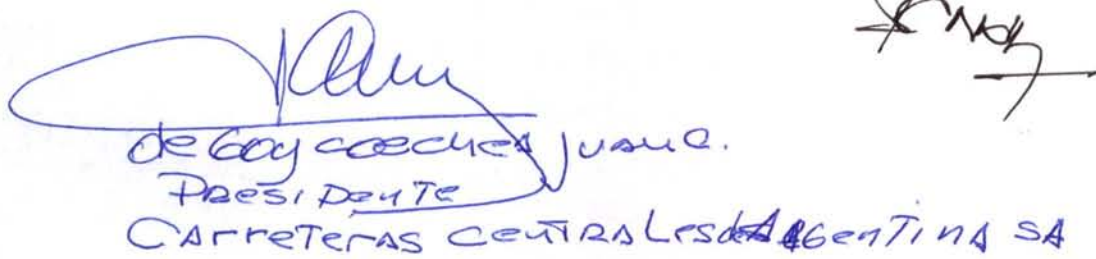 de Goycoechea Juan C.
Presidente
Carreteras Centrales de Argentina SA